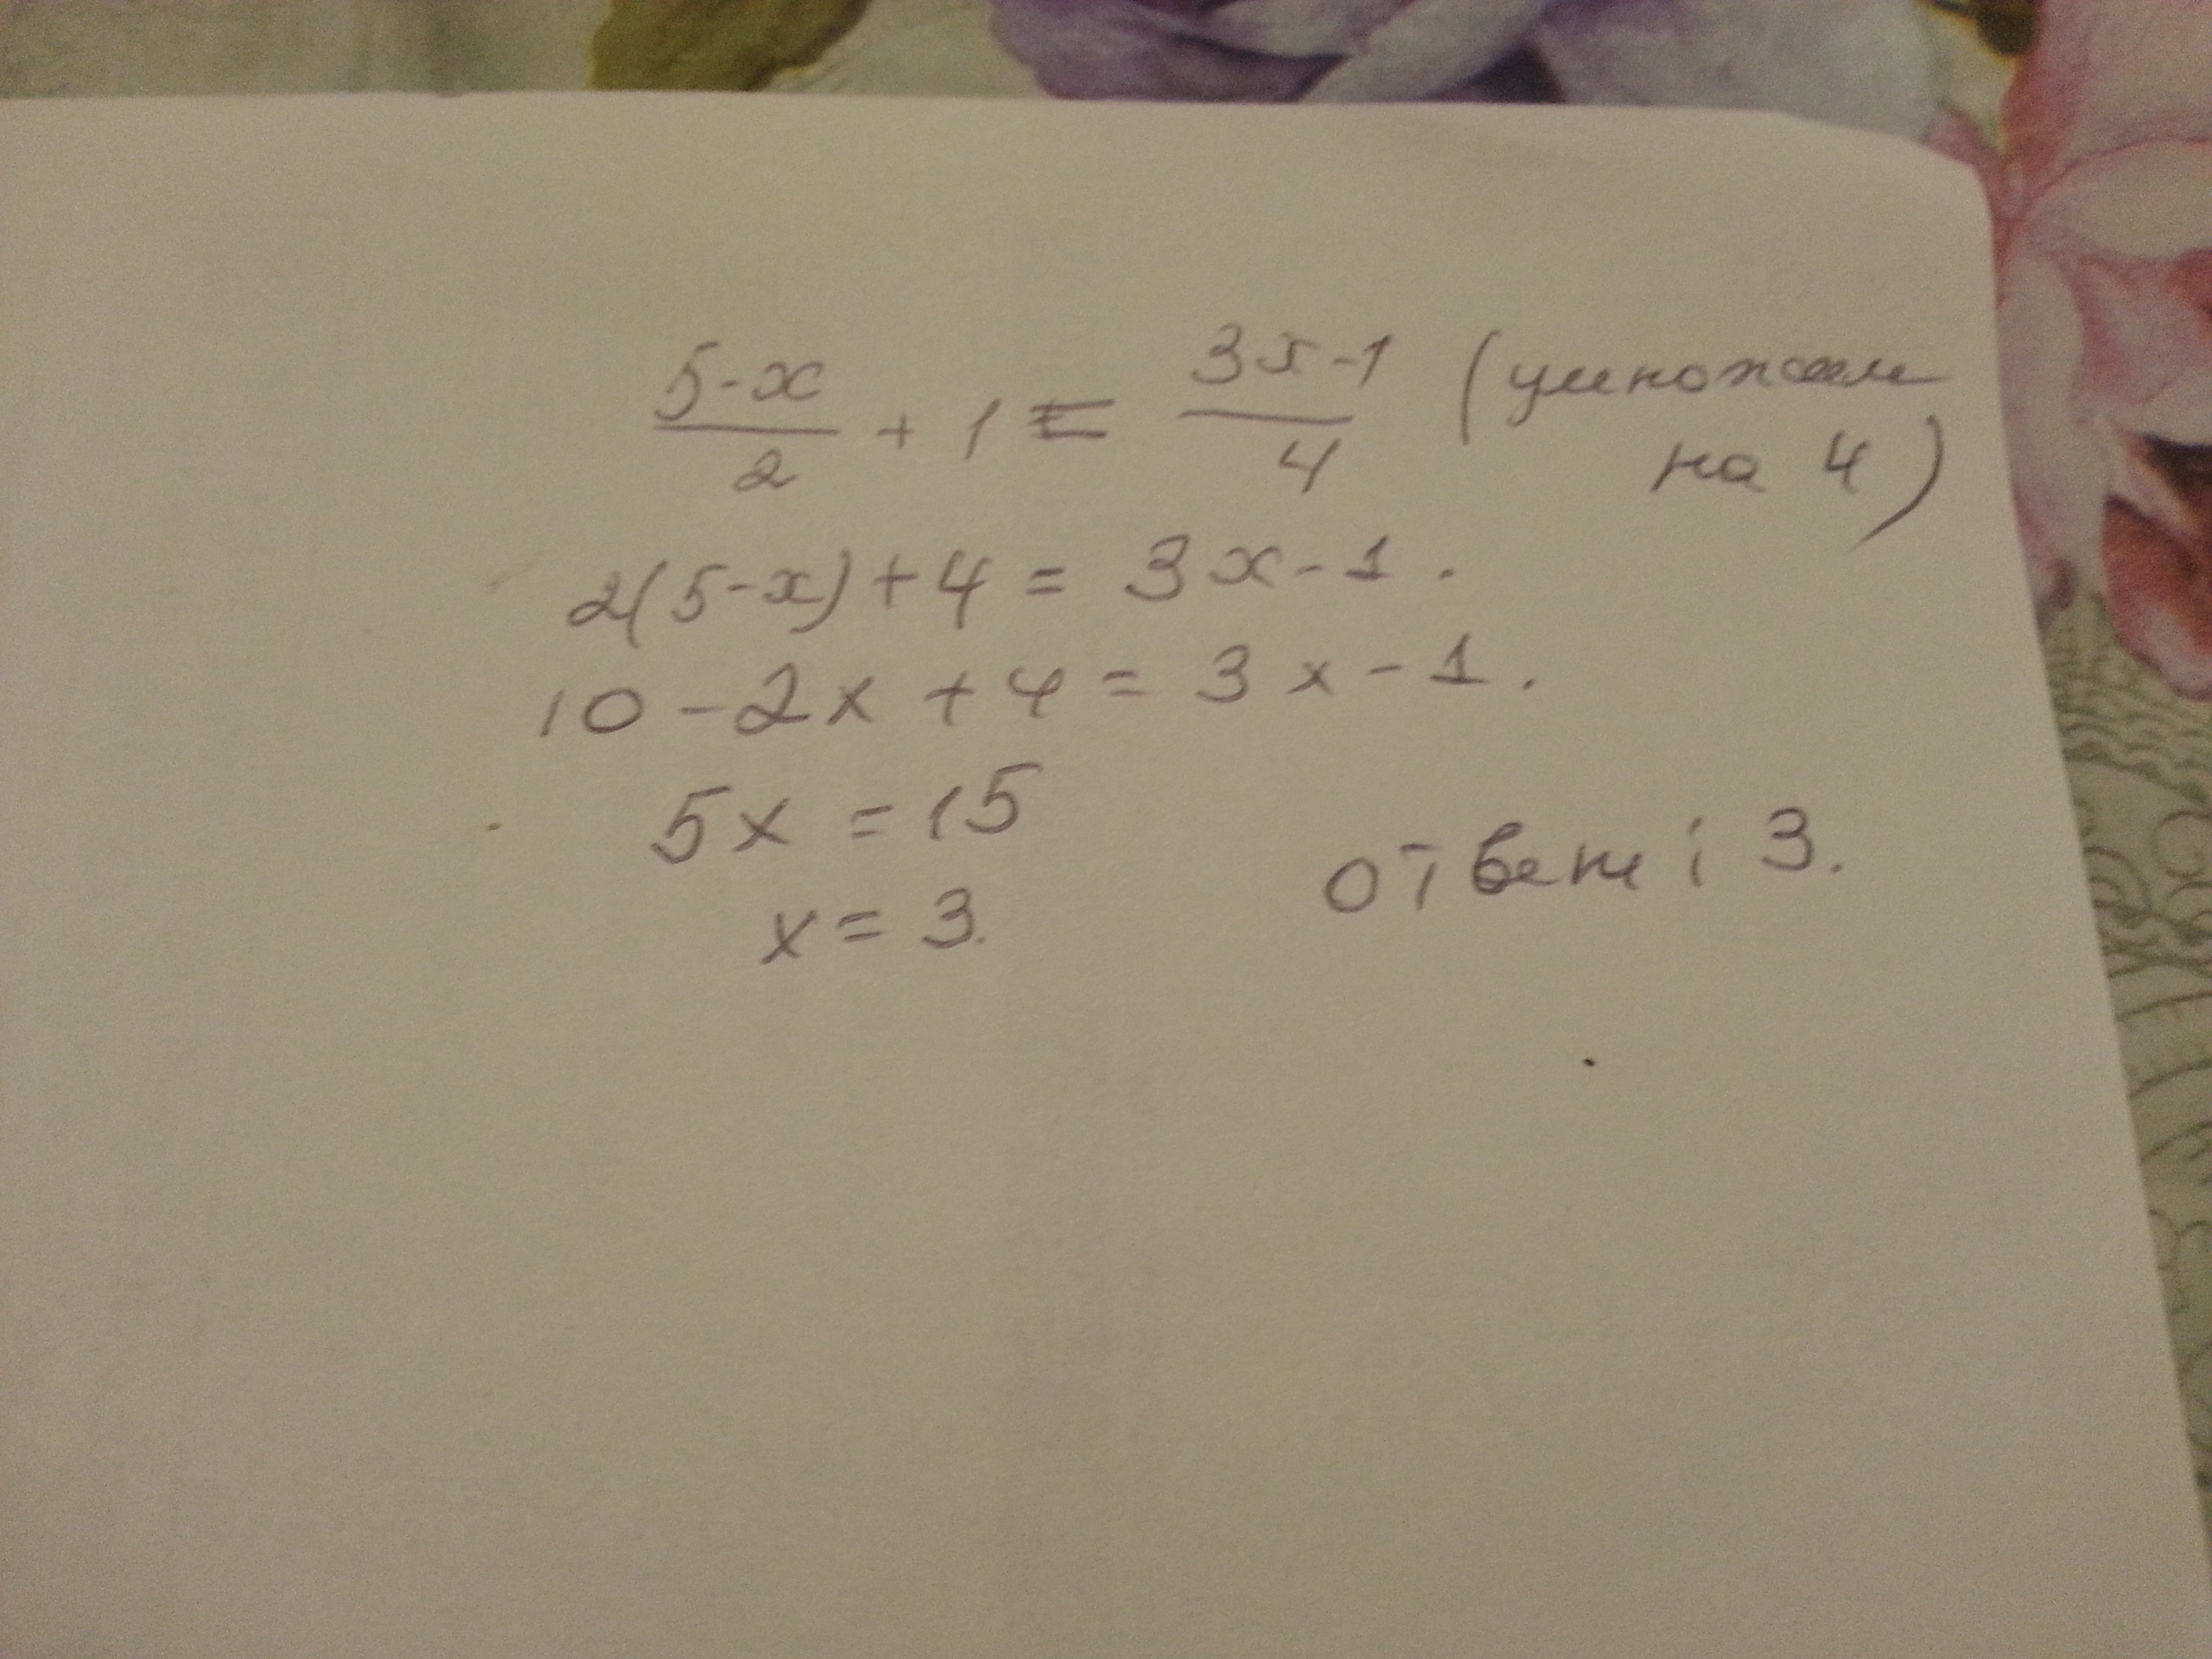 5-x/2 + 1 = 3x-1/4 (умножаем
на 4)
2(5-x)+4 = 3x-1.
10-2x+4 = 3x-1.
5x = 15
x = 3.
ответ: 3.